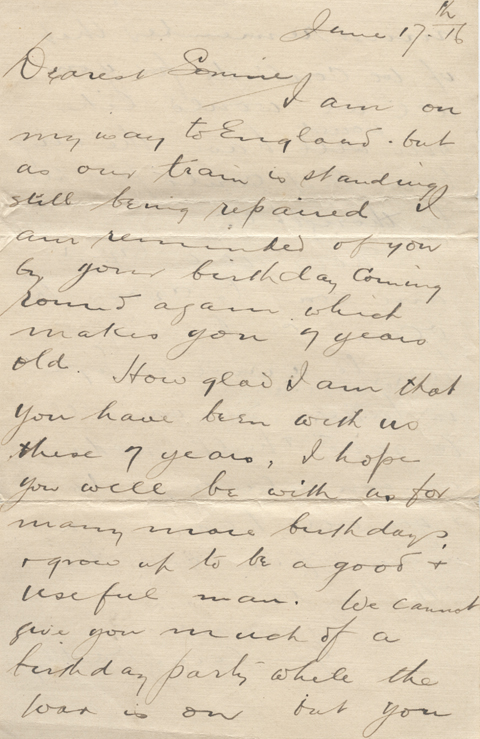 June 17th 16
Dearest
I am on
my way to England. but
as our train is standing
still being repaired I
am reminded of you
by your birthday coming
round again which
makes you 7 years
old. How glad I am that
you have been with us
these 7 years, I hope
you will be with us for
many more birthdays,
& grow up to be a good &
useful man. We cannot
give you much of a
birthday party while the
war is on but you